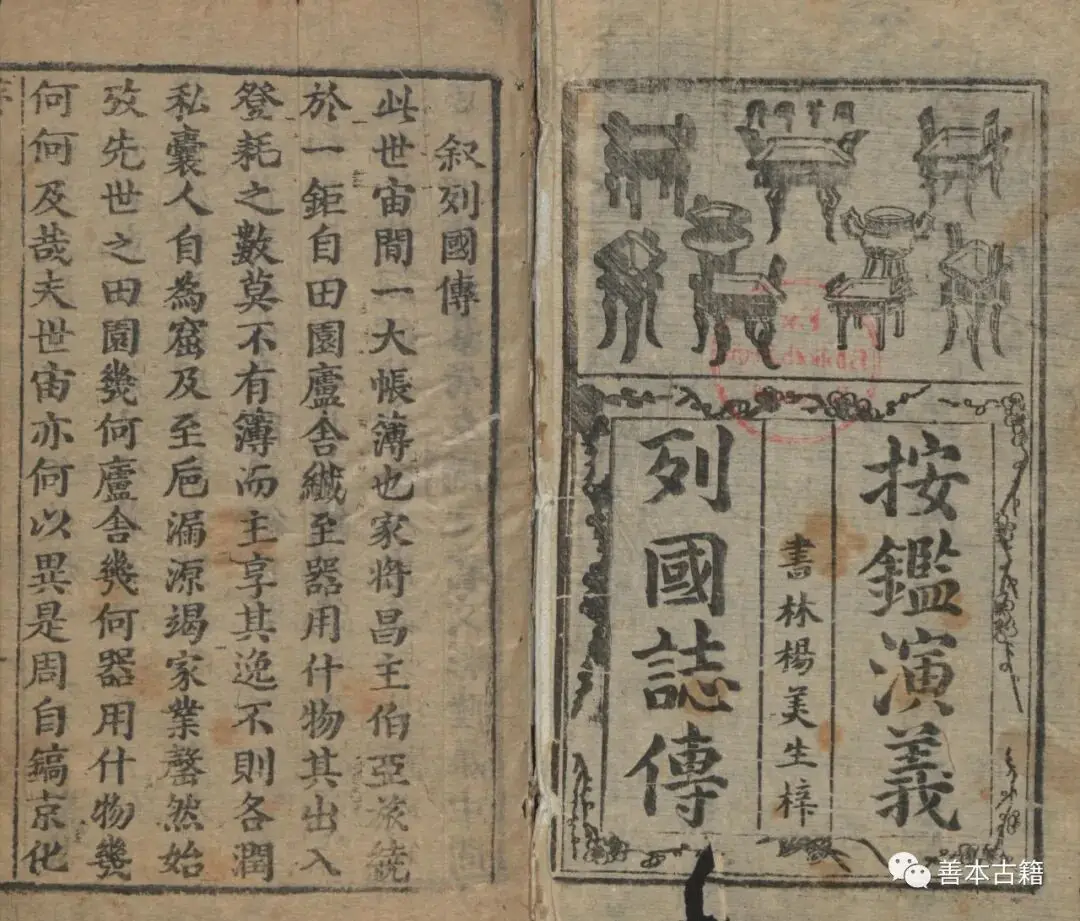 按鑑演義
書林楊美生梓
列國誌傳
叙列國傳
此世宙間一大帳薄也家將昌主伯亞旅統
於一鉅自田園廬舍纖至器用什物其出入
登耗之數莫不有簿而主享其逸不則各潤
私囊人自為窟及至巵漏源竭家業罄然始
攷先世之田園幾何廬舍幾何器用什物幾
何何及哉夫世宙亦何以異是周自鎬京化
善本古籍